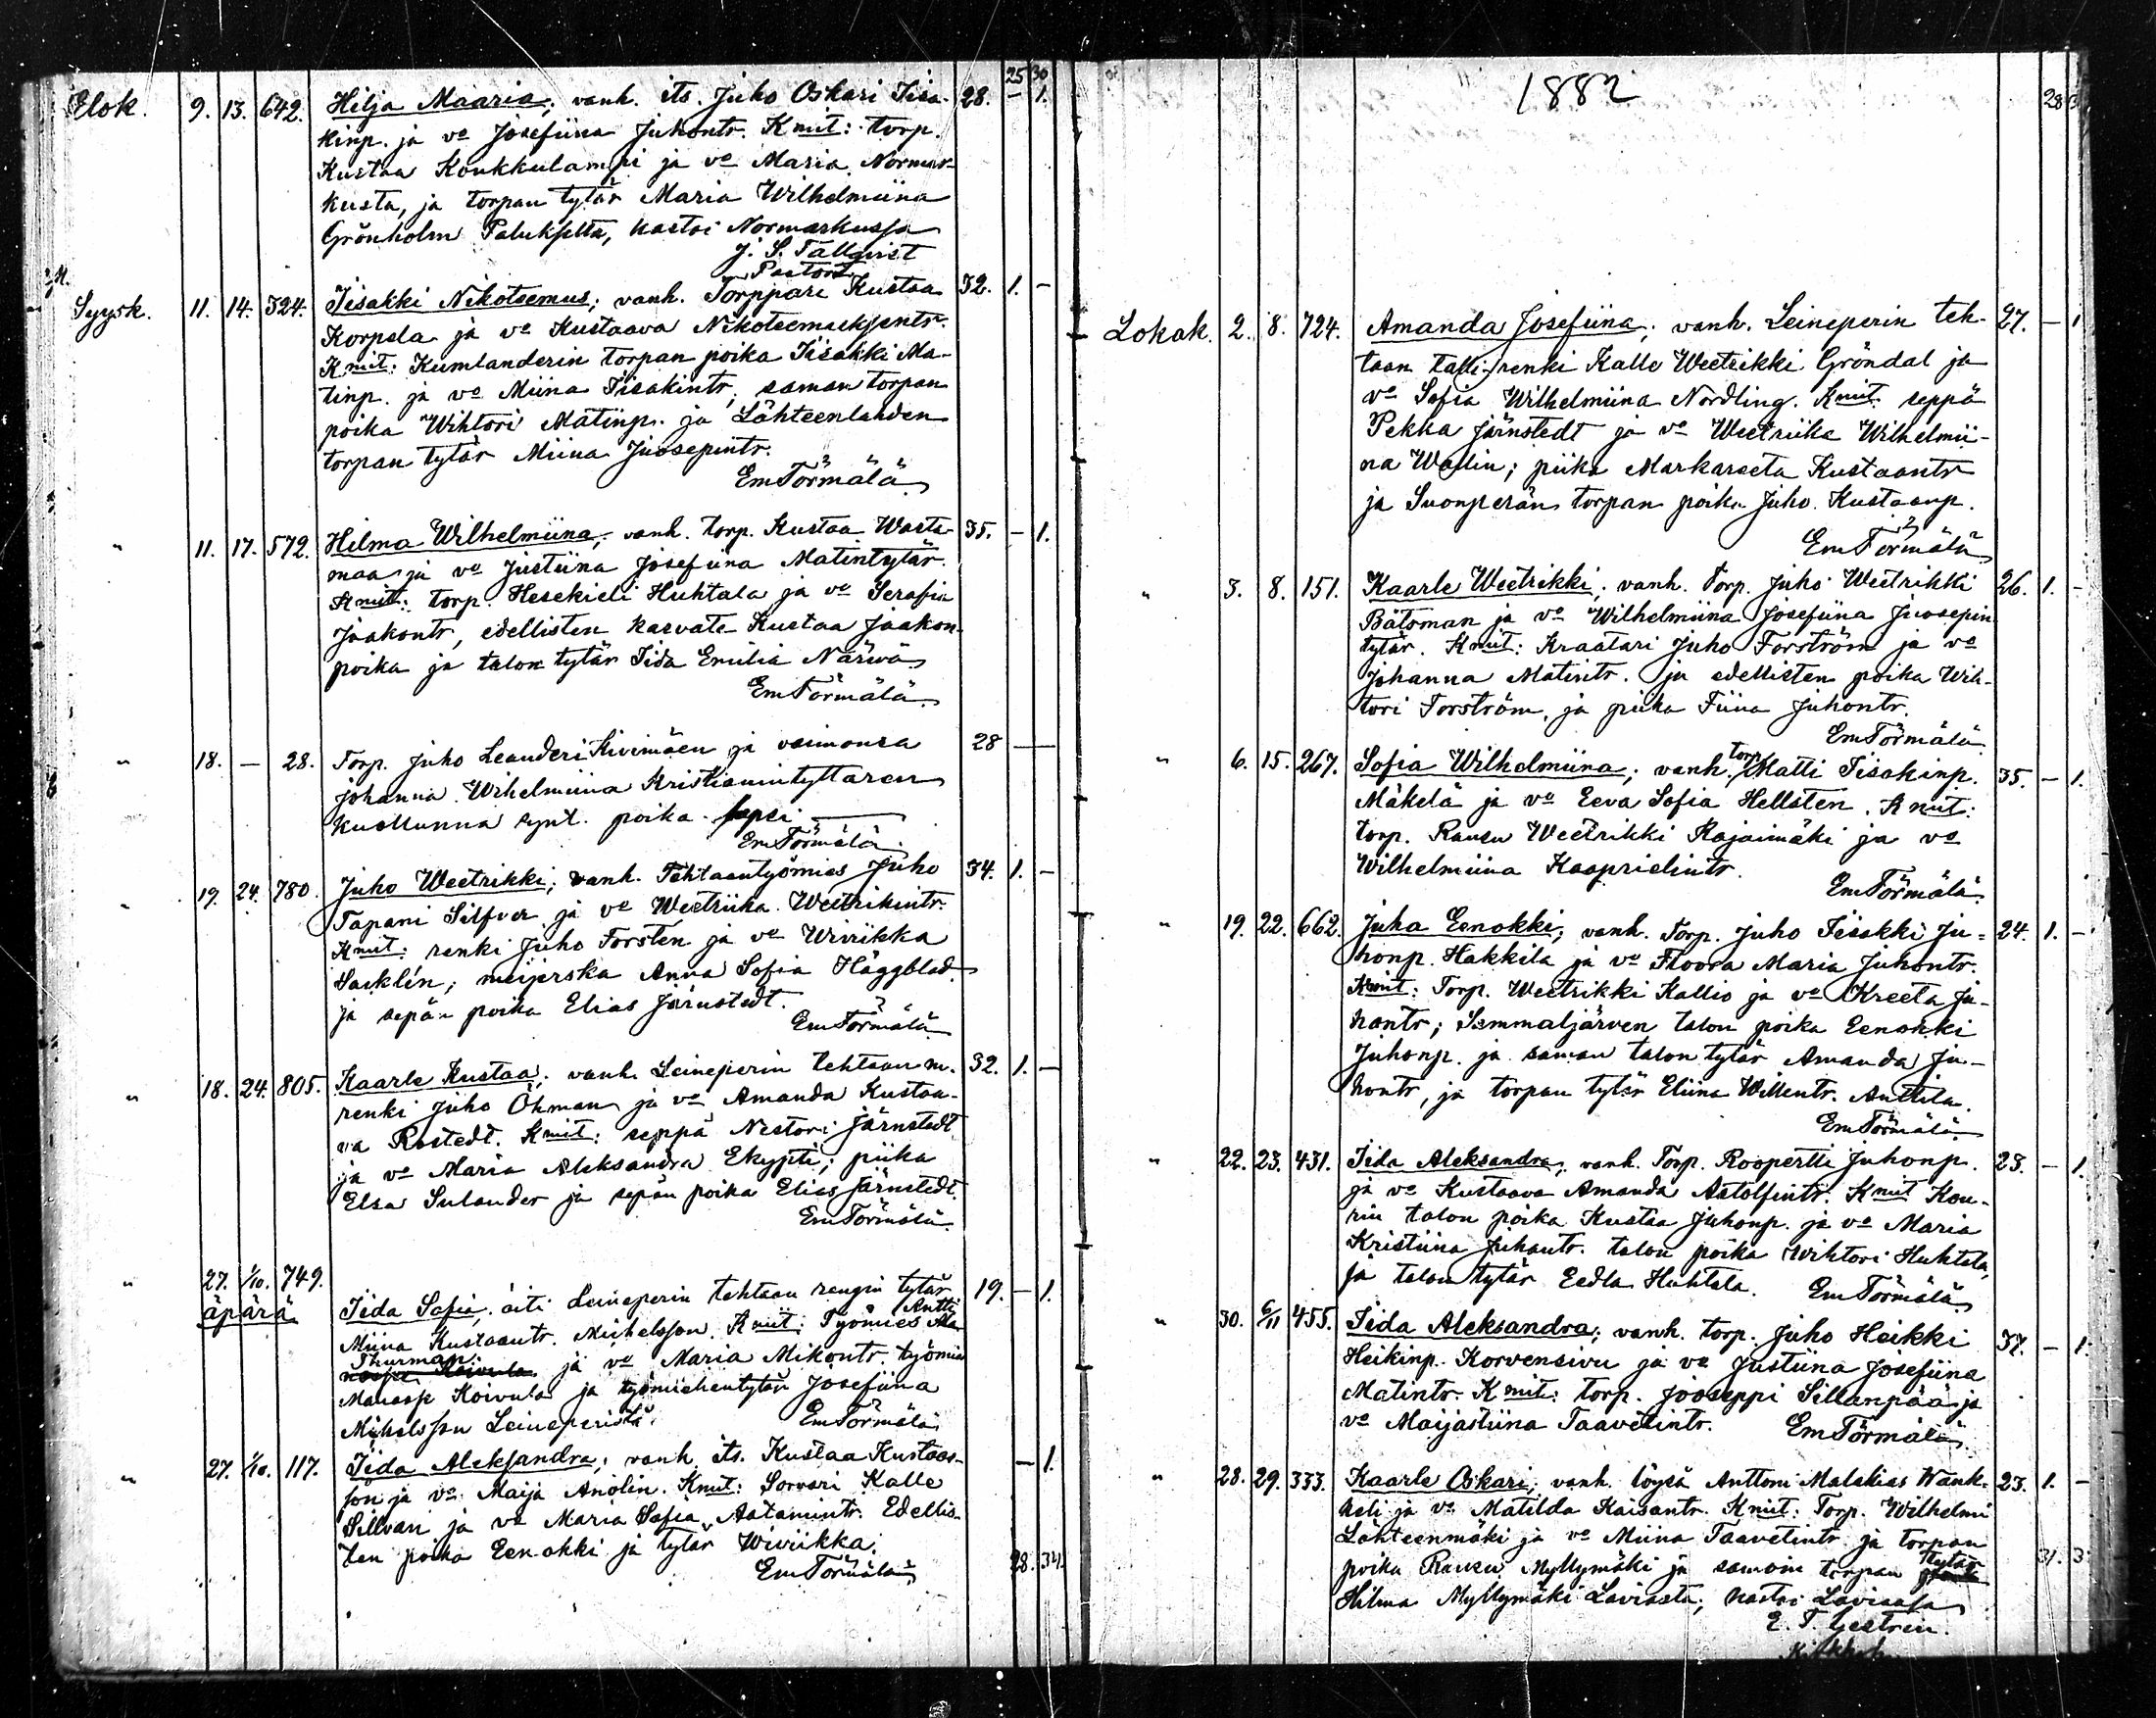 25 30
Elok. 9. 13. 642. Hilja Maaria; vanh. its. Juho Oskari Iisa- 28. – 1.
kinp. ja vo Josefiina Juhontr. Kmit: torp.
Kustaa Koukkulampi ja vo Maria Normar-
kusta, ja torpan tytär Maria Wilhelmiina
Grönholm Paluksilta, kastoi Normarkussa
J. S. Tallqvist
Pastori
Syysk. 11. 14. 324. Iisakki Nikoteemus; vanh. Torppari Kustaa 32. 1. –
Korpela ja vo Kustaava Nikoteemuksentr.
Kmit: Kumlanderin torpan poika Iisakki Ma-
tinp. ja vo Miina Iisakintr, saman torpan
poika Wihtori Matinp. ja Lähteenlahden
torpan tytär Miina Juosepintr.
Em Törmälä
" 11. 17. 572. Hilma Wilhelmiina; vanh. torp. Kustaa Wasta- 35. – 1.
maa ja vo Justiina Josefiina Matintytär.
Kmit: torp. Hesekieli Huhtala ja vo Serafia
Jaakontr, edellisten kasvate Kustaa Jaakon-
poika ja talon tytär Iida Emilia Närwä
Em Törmälä.
" 18. – 28. Torp. Juho Leanderi Kivimäen ja vaimonsa 28 —
Johanna Wilhelmiina Kristianintyttaren
kuollunna synt. poika lapsi —
Em Törmälä.
" 19. 24. 780. Juho Weetrikki; vanh. Tehtaantyömies Juho 34. 1. –
Tapani Silfver ja vo Weetriika Weetrikintr.
Kmit: renki Juho Forsten ja vo Wiviikka
Sacklén; meijerska Anna Sofia Häggblad
ja sepän poika Elias Järnstedt.
Em Törmälä
" 18. 24. 805. Kaarle Kustaa; vanh. Leineperin tehtaan m. 32. 1. –
renki Juho Öhman ja vo Amanda Kustaa-
va Rostedt. Kmit: seppä Nestori Järnstedt
ja vo Maria Aleksandra Ekypti; piika
Elsa Sulander ja sepän poika Elias Järnstedt.
Em Törmälä.
" 27. 1/10. 749.
äpärä Iida Sofia, äiti Leineperin tehtaan rengin tytär 19. – 1.
Miina Kustaantr. Michelsson. Kmit: Työmies Antti
Thurman ja vo Maria Mikontr. työmies
Manasse Koivula ja työmiehentytär Josefiina
Mihelsson Leineperistä. Em Törmälä
" 27. 1/10. 117. Iida Aleksandra; vanh. its. Kustaa Kustaas- – 1.
son ja vo Maija Anolin. Kmit: Sorvari Kalle
Sillvan ja vo Maria Sofia Aatamintr. Edellis-
ten poika Eenokki ja tytär Wiviikka.
Em Törmälä
28. 34.
1882
28
Lokak. 2. 8. 724. Amanda Josefiina; vanh. Leineperin teh- 27. – 1
taan talli renki Kalle Weetrikki Gröndal ja
vo Sofia Wilhelmiina Nordling. Kmit. seppä
Pekka Järnstedt ja vo Weetriika Wilhelmii-
na Wallin; piika Markareeta Kustaantr
ja Suonperän torpan poika Juho Kustaanp.
Em Törmälä
" 3. 8. 151. Kaarle Weetrikki; vanh. Torp. Juho Weetrikki 26. 1. –
Båtsman ja vo Wilhelmiina Josefiina Juosepin
tytär. Kmit: Kraatari Juho Forström ja vo
Johanna Matintr. ja edellisten poika Wih-
tori Forström, ja piika Fiina Juhontr.
Em Törmälä.
" 6. 15. 267. Sofia Wilhelmiina; vanh. torp. Matti Iisakinp. 35. – 1.
Mäkelä ja vo Eeva Sofia Hellsten. Kmit:
torp. Ransu Weetrikki Rajaimäki ja vo
Wilhelmiina Kaaprielintr.
Em Törmälä
" 19. 22. 662. Juha Eenokki; vanh. Torp. Juho Iisakki Ju- 24. 1. –
honp. Hakkila ja vo Floora Maria Juhontr.
Kmit: Torp. Weetrikki Kallio ja vo Kreeta Ju-
hontr; Sammaljärven talon poika Eenokki
Juhonp. ja saman talon tytär Amanda Ju-
hontr, ja torpan tytär Eliina Willentr. Anttila.
Em Törmälä.
" 22. 23. 431. Iida Aleksandra; vanh. Torp. Roopertti Juhonp. 23. – 1.
ja vo Kustaava Amanda Astolfintr. Kmit Kou-
rin talon poika Kustaa Juhonp. ja vo Maria
Kristiina Juhontr. talon poika Wihtori Huhtala,
ja talon tytär Eedla Huhtala. Em Törmälä
" 30. 6/11 455. Iida Aleksandra; vanh. torp. Juho Heikki 37. – 1.
Heikinp. Korvensivu ja vo Justiina Josefiina
Matintr. Kmit: torp. Jooseppi Sillanpää ja
vo Maijastiina Taavetintr. Em Törmälä.
" 28. 29. 333. Kaarle Oskari; vanh. löysä Anttoni Malakias Wänk- 23. 1. –
keli ja vo Matilda Kaisantr. Kmit: Torp. Wilhelmi
Lähteenmäki ja vo Miina Taavetintr ja torpan
poika Ransu Myllymäki ja samoin torpan tytär
Hilma Myllymäki Laviasta; kastoi Laviassa
E. T. Gestrin.
31. 3